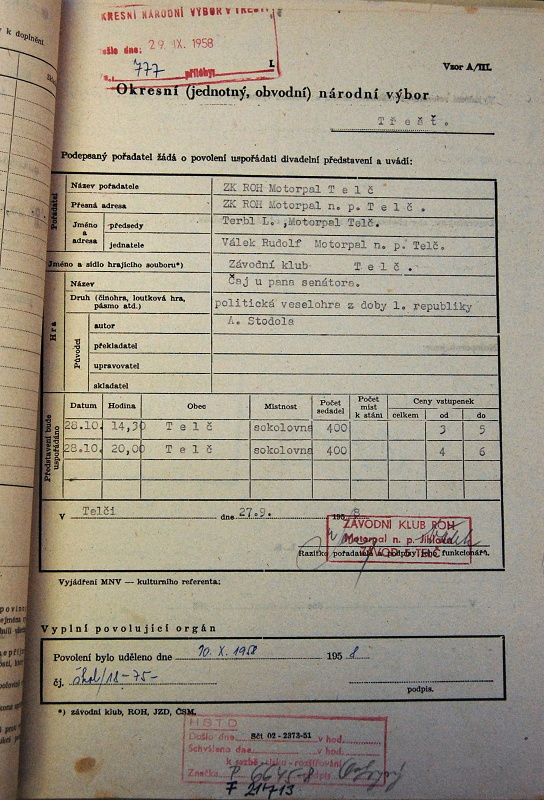 y k doplnění
OKRESNÍ NÁRODNÍ VÝBOR V TŘEŠTI
Došlo dne: 29. IX. 1958
777 přílohy:
I.
Vzor A/III.
Okresní (jednotný, obvodní) národní výbor
T ř e š ť.
Podepsaný pořadatel žádá o povolení uspořádati divadelní představení a uvádí:
Pořadatel
Název pořadatele ZK ROH Motorpal T e l č
Přesná adresa ZK ROH Motorpal n. p. T e l č .
Jméno a adresa předsedy Terbl L. ,Motorpal Telč.
jednatele Válek Rudolf Motorpal n. p. Telč.
Jméno a sídlo hrajícího souboru*) Závodní klub T e l č .
Hra
Název Čaj u pana senátora.
Druh (činohra, loutková hra, pásmo atd.) politická veselohra z doby 1. republiky
Původci
autor A. Stodola
překladatel
upravovatel
skladatel
Představení bude uspořádáno
Datum Hodina Obec Místnost Počet sedadel Počet míst k stání Ceny vstupenek
celkem od do
28.10. 14,30 T e l č sokolovna 400 3 5
28.10. 20,00 T e l č sokolovna 400 4 6
V Telči dne 27.9. 195 8
ZÁVODNÍ KLUB ROH
Motorpal n. p. Jihlava
ZÁVOD 5 TELČ
Razítko pořadatele a podpisy jeho funkcionářů.
Vyjádření MNV — kulturního referenta:
Vyplní povolující orgán
Povolení bylo uděleno dne 10. X. 1958 195 8
čj. škol/18-75-
podpis.
*) závodní klub, ROH, JZD, ČSM.
HSTD
Došlo dne: v hod.
Sčt 02 - 2373-51
Schváleno dne v hod.
k sazbě - tisku - rozšiřování
Značka P 6645-8 podpis
F 21713